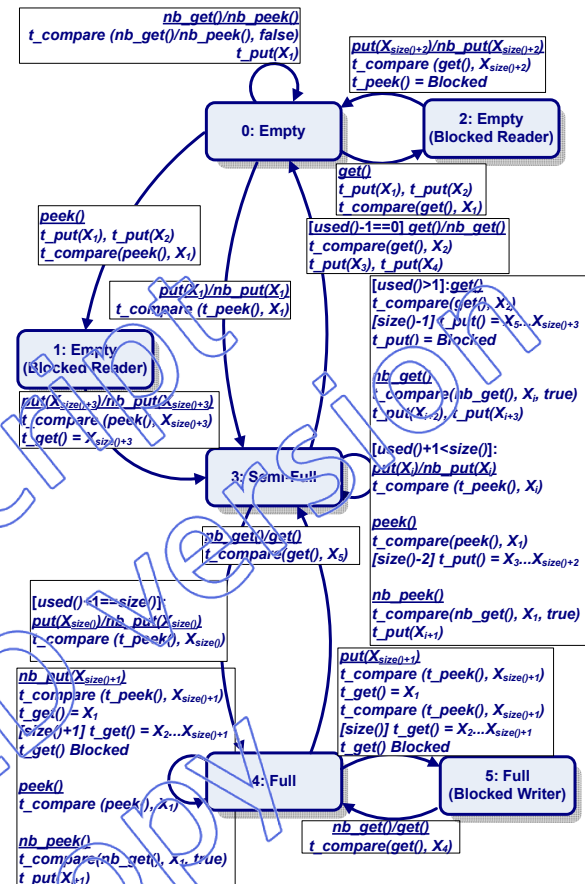 nb_get()/nb_peek()
t_compare (nb_get()/nb_peek(), false)
t_put(X1)
put(Xsize()+2)/nb_put(Xsize()+2)
t_compare (get(), Xsize()+2)
t_peek() = Blocked
0: Empty
2: Empty
(Blocked Reader)
get()
t_put(X1), t_put(X2)
t_compare(get(), X1)
peek()
t_put(X1), t_put(X2)
t_compare(peek(), X1)
[used()-1==0] get()/nb_get()
t_compare(get(), X2)
t_put(X3), t_put(X4)
put(X1)/nb_put(X1)
t_compare (t_peek(), X1)
1: Empty
(Blocked Reader)
put(Xsize()+3)/nb_put(Xsize()+3)
t_compare (peek(), Xsize()+3)
t_get() = Xsize()+3
[used()>1]:get()
t_compare(get(), X2)
[size()-1] t_put() = X5...Xsize()+3
t_put() = Blocked
nb_get()
t_compare(nb_get(), Xi, true)
t_put(Xi+2), t_put(Xi+3)
[used()+1<size()]:
put(Xi)/nb_put(Xi)
t_compare (t_peek(), Xi)
peek()
t_compare(peek(), X1)
[size()-2] t_put() = X3...Xsize()+2
nb_peek()
t_compare(nb_get(), X1, true)
t_put(Xi+1)
3: Semi-Full
nb_get()/get()
t_compare(get(), X5)
[used()+1==size()]:
put(Xsize())/nb_put(Xsize())
t_compare (t_peek(), Xsize())
nb_put(Xsize()+1)
t_compare (t_peek(), Xsize()+1)
t_get() = X1
[size()+1] t_get() = X2...Xsize()+1
t_get() Blocked
peek()
t_compare (peek(), X1)
nb_peek()
t_compare(nb_get(), X1, true)
t_put(Xi+1)
put(Xsize()+1)
t_compare (t_peek(), Xsize()+1)
t_get() = X1
t_compare (t_peek(), Xsize()+1)
[size()] t_get() = X2...Xsize()+1
t_get() Blocked
4: Full
5: Full
(Blocked Writer)
nb_get()/get()
t_compare(get(), X4)